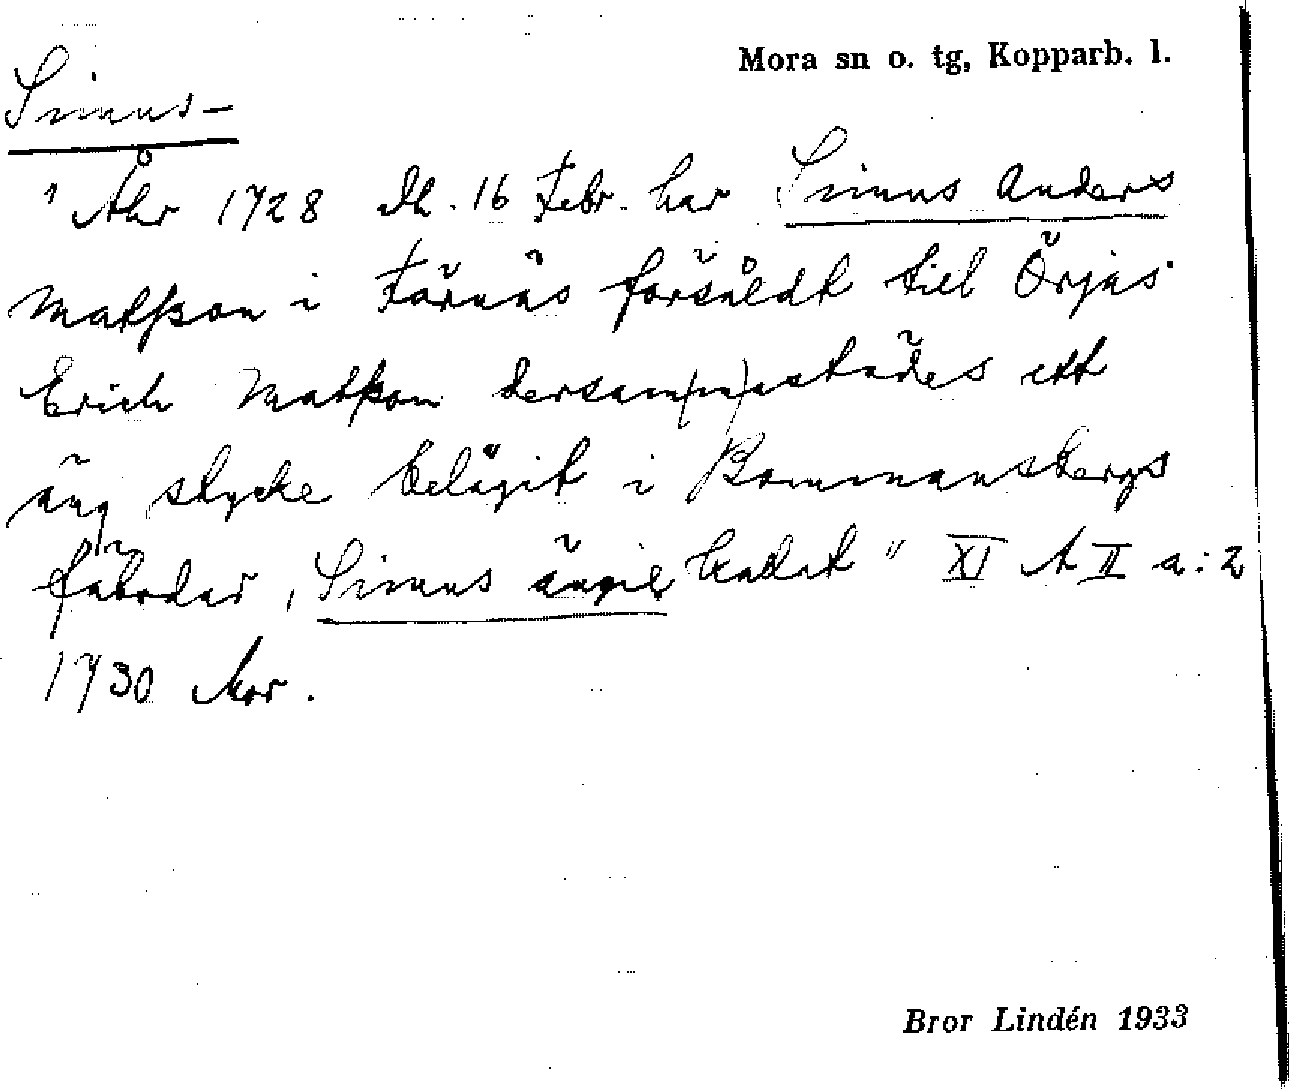 Mora sn o. tg, Kopparb. l.
Simus-
"Åhr 1728 dh. 16 Febr. har Simus Anders
Matsson i Färnäs försåldt til Örjas
Erich Matsson dersam(m)astädes ett
äng stycke belägit i Bommansbergs
fäbodar, Simus ängie kallat" XI A II a:2
1730 Mor.
Bror Lindén 1933